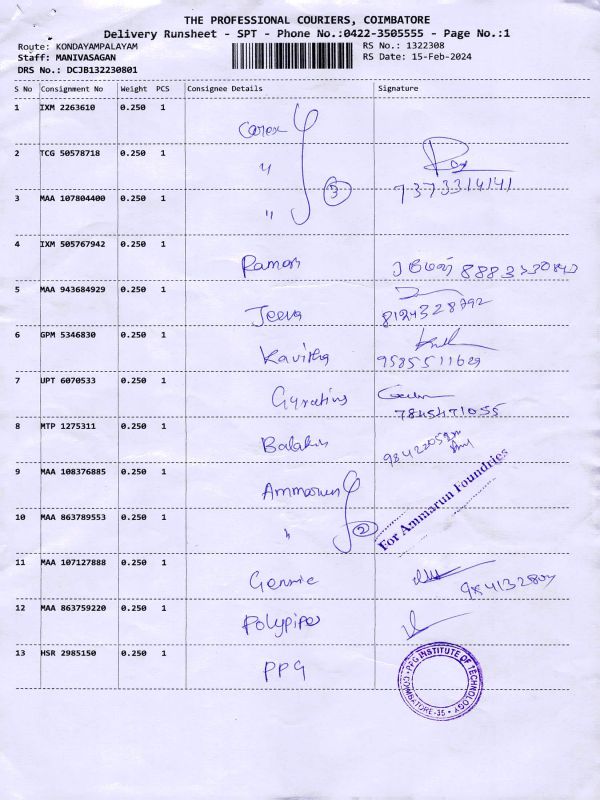 THE PROFESSIONAL COURIERS, COIMBATORE
Delivery Runsheet - SPT - Phone No.:0422-3505555 - Page No.:1
Route: KONDAYAMPALAYAM RS No.: 1322308
Staff: MANIVASAGAN RS Date: 15-Feb-2024
DRS No.: DCJB132230801
S No Consignment No Weight PCS Consignee Details Signature
1 IXM 2263610 0.250 1 Carex
2 TCG 50578718 0.250 1 "
3 MAA 107804400 0.250 1 " 3 7373314141
4 IXM 505767942 0.250 1 Raman
5 MAA 943684929 0.250 1 Jeeva 8124328792
6 GPM 5346830 0.250 1 Kavitha 9585511629
7 UPT 6070533 0.250 1 7845471055
8 MTP 1275311 0.250 1
9 MAA 108376885 0.250 1 Ammarun For Ammarun Foundries
10 MAA 863789553 0.250 1 " 2
11 MAA 107127888 0.250 1
12 MAA 863759220 0.250 1 Polypipes
13 HSR 2985150 0.250 1 PPG PPG INSTITUTE OF TECHNOLOGY COIMBATORE-35